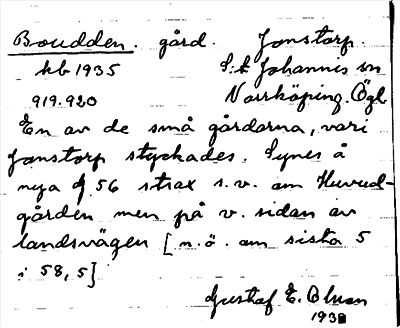 Boudden. gård. Jonstorp.
kb 1935 S:t Johannis sn
919.920 Norrköping. Ögl
En av de små gårdarna, vari
Jonstorp styckades. Synes å
nya J. 56 strax s.v. om Huvud-
gården men på v. sidan av
landsvägen [n.ö. om sista 5
i 58,5]
Gustaf E. Olson
1938